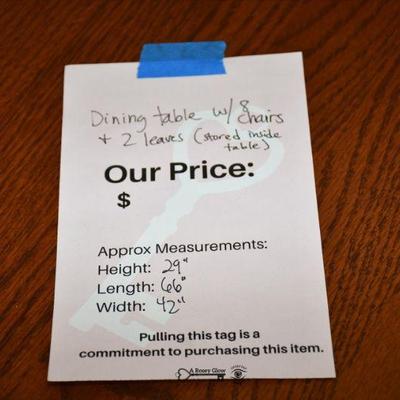 Dining table w/ 8 chairs
+ 2 leaves (stored inside
table)
Our Price:
$
Approx Measurements:
Height: 29"
Length: 66"
Width: 42"
Pulling this tag is a
commitment to purchasing this item.